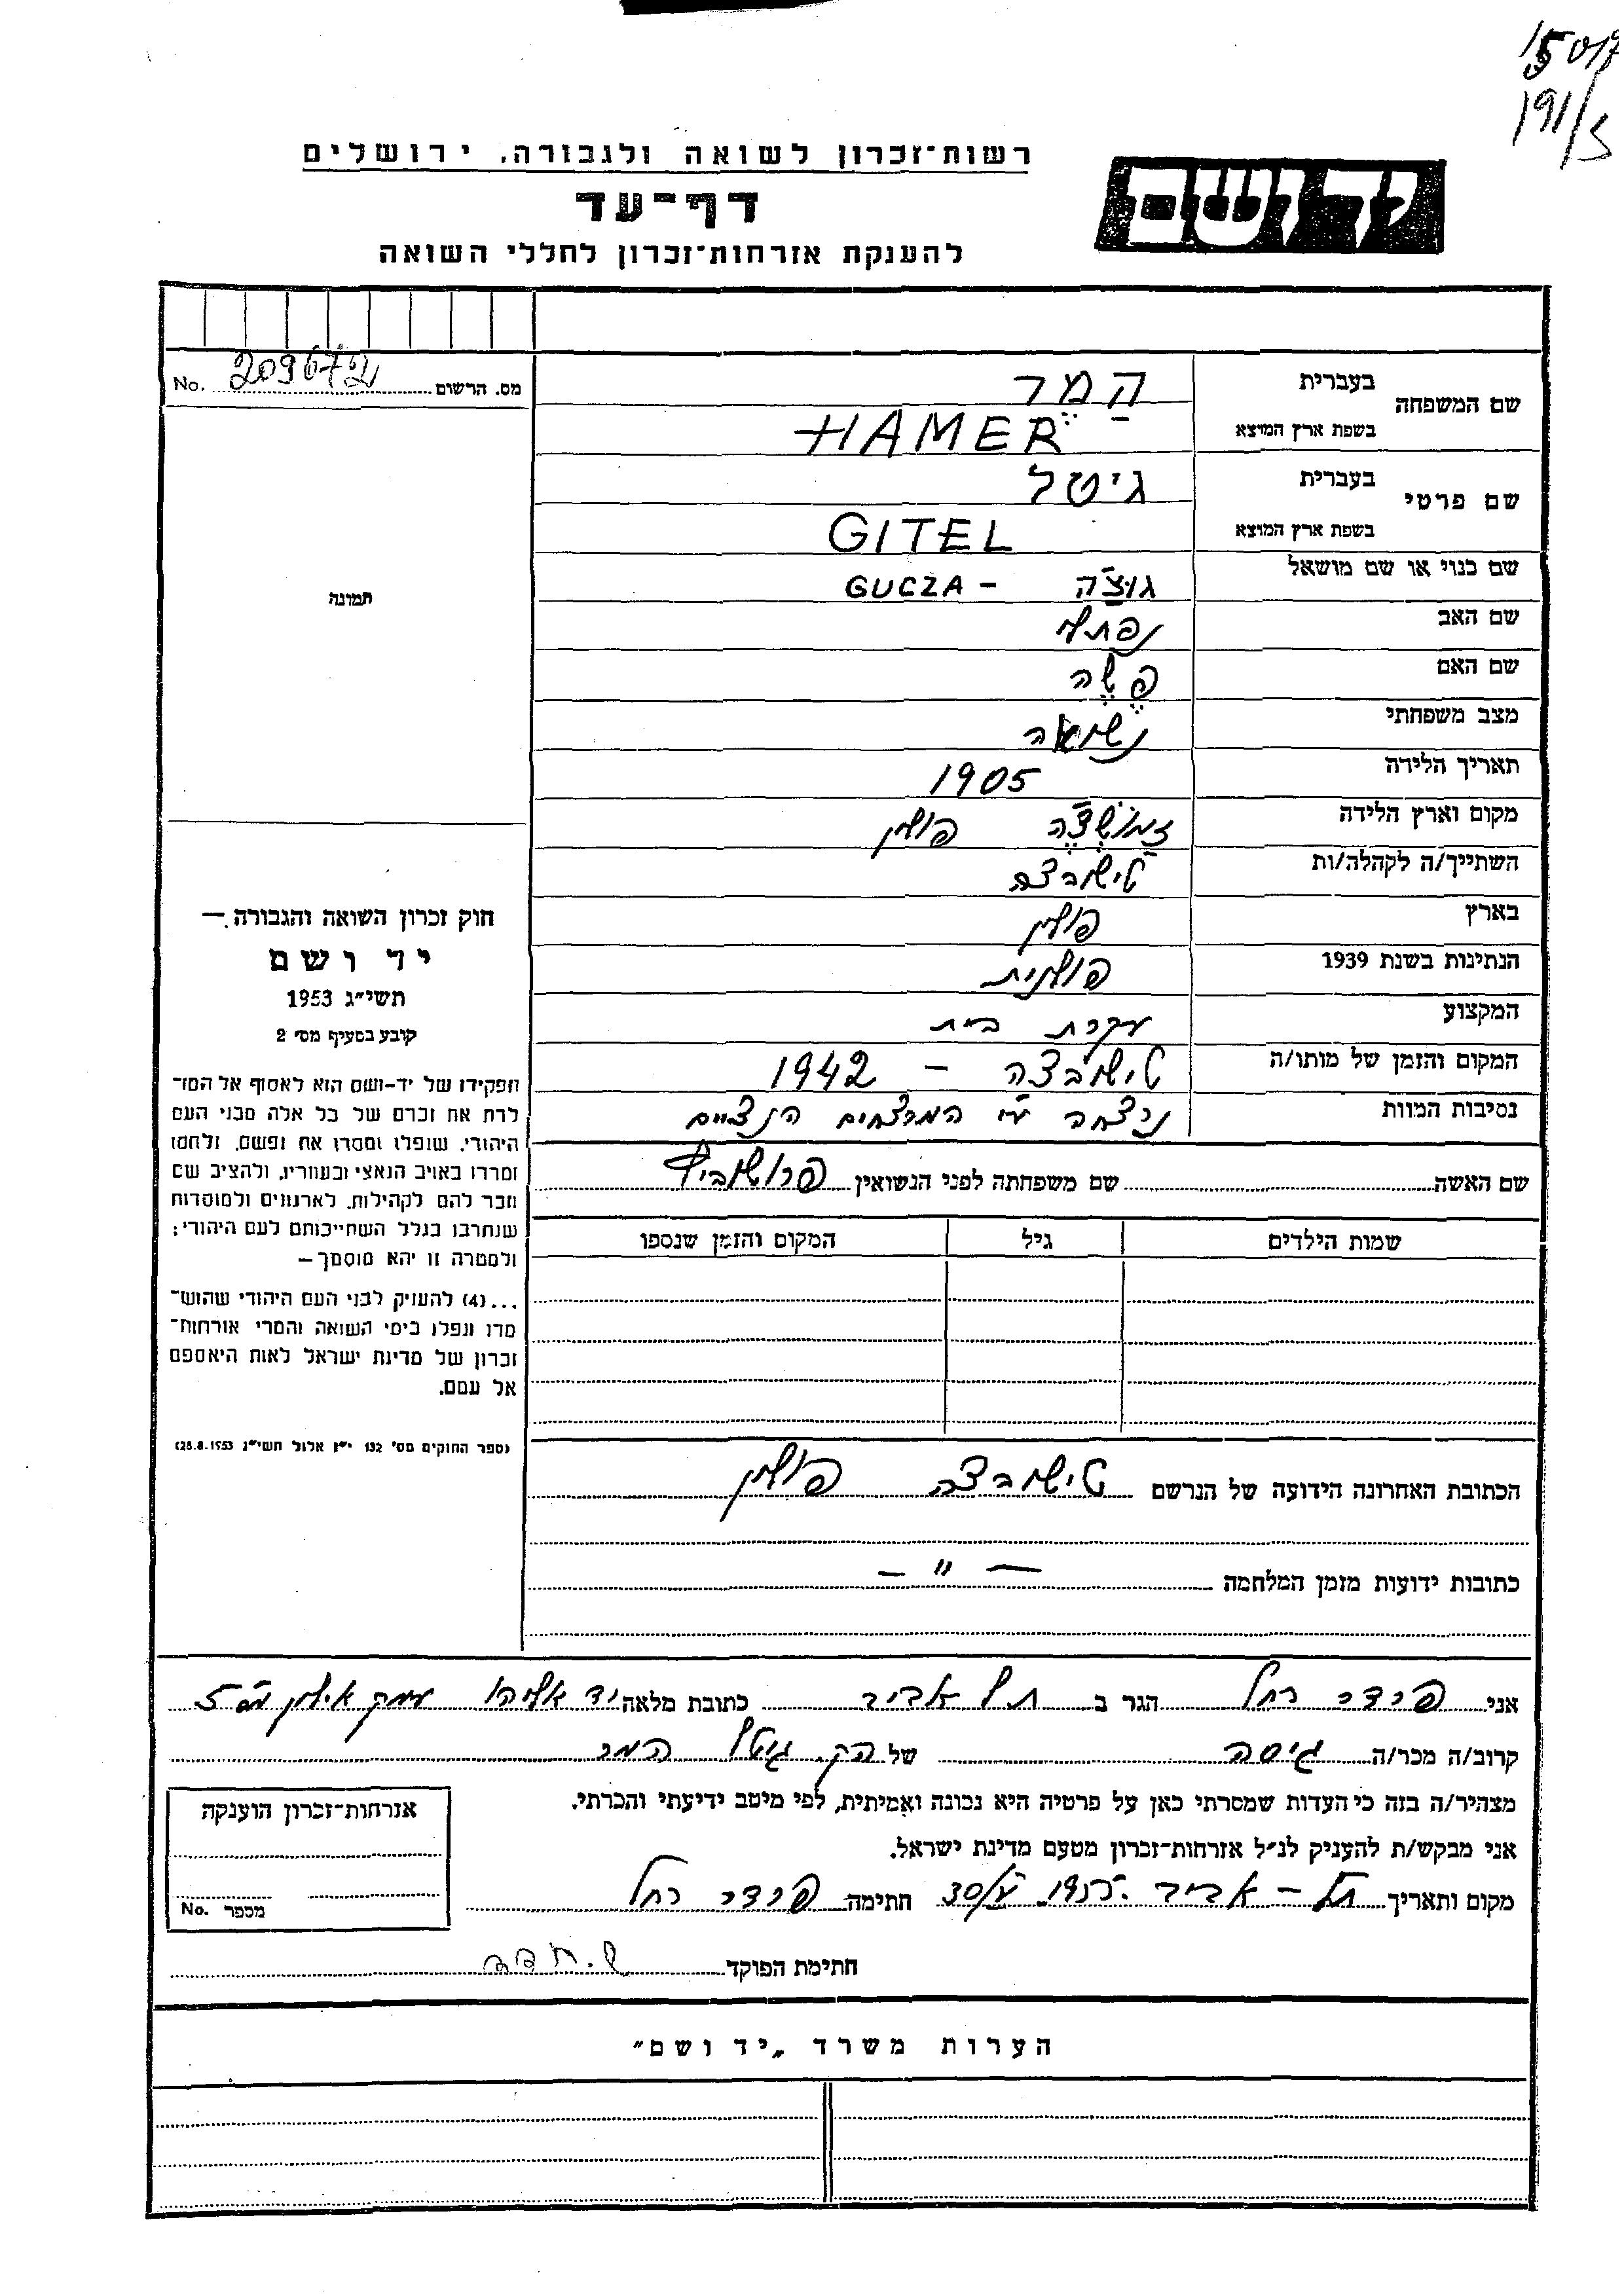 15017
191/5
רשות־זכרון לשואה ולגבורה, ירושלים
יד ושם
דף־עד
להענקת אזרחות־זכרון לחללי השואה
מס. הרשום 209672 No.
שם המשפחה
בעברית הַמֶר
בשפת ארץ המוצא HAMER
שם פרטי
בעברית גיטל
בשפת ארץ המוצא GITEL
שם כנוי או שם מושאל גוצ'ה - GUCZA
שם האב נפתלי
שם האם פֶשֶה
מצב משפחתי נשואה
תאריך הלידה 1905
מקום וארץ הלידה פולין
השתייך/ה לקהלה/ות טישובצה
בארץ פולין
הנתינות בשנת 1939 פולנית
המקצוע עקרת בית
המקום והזמן של מותו/ה טישובצה - 1942
נסיבות המוות נרצחה ע"י המרצחים הנצ'יים
שם האשה שם משפחתה לפני הנשואין
שמות הילדים גיל המקום והזמן שנספו
הכתובת האחרונה הידועה של הנרשם טישובצה פולין
כתובות ידועות מזמן המלחמה — " —
תמונה
חוק זכרון השואה והגבורה —
יד ושם
תשי״ג 1953
קובע בסעיף מס׳ 2
תפקידו של יד-ושם הוא לאסוף אל המו־
לדת את זכרם של כל אלה מבני העם
היהודי, שנפלו ומסרו את נפשם, נלחמו
ומרדו באויב הנאצי ובעוזריו, ולהציב שם
וזכר להם לקהילות, לארגונים ולמוסדות
שנחרבו בגלל השתייכותם לעם היהודי;
ולמטרה זו יהא מוסמך —
...(4) להעניק לבני העם היהודי שהוש־
מדו ונפלו בימי השואה והמרי אזרחות־
זכרון של מדינת ישראל לאות היאספם
אל עמם.
(ספר החוקים מס׳ 132 י״ז אלול תשי״ג 28.8.1953)
אני פרדר רחל הגר ב תל אביב כתובת מלאה יד אליהו עמק אילון מס 5
קרוב/ה מכר/ה גיסה של הק. גיטל המר
מצהיר/ה בזה כי העדות שמסרתי כאן על פרטיה היא נכונה ואמיתית, לפי מיטב ידיעתי והכרתי.
אני מבקש/ת להעניק לנ״ל אזרחות־זכרון מטעם מדינת ישראל.
מקום ותאריך תל - אביב חתימה פרדר רחל
חתימת הפוקד
אזרחות־זכרון הוענקה
מספר No.
הערות משרד „יד ושם״